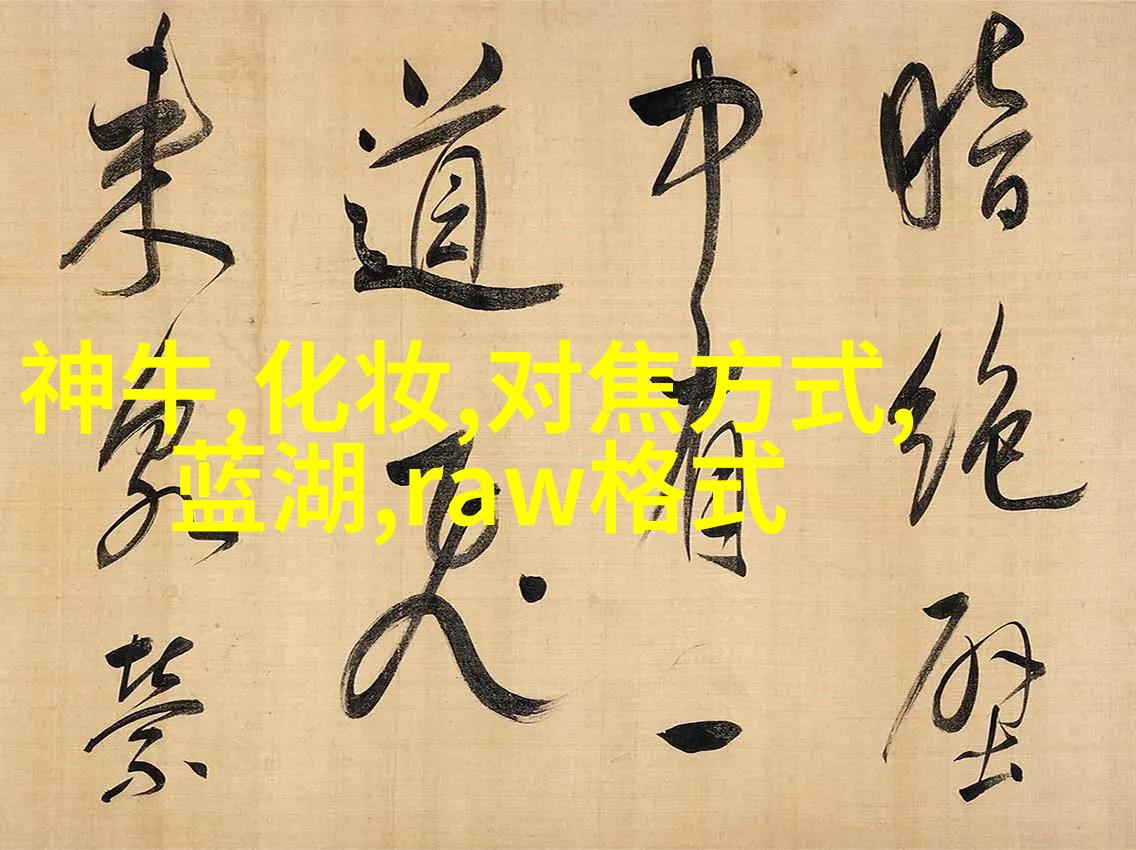 神牛,化妆,对焦方式,
蓝湖,raw格式
暗絶壁
中有一
道
来